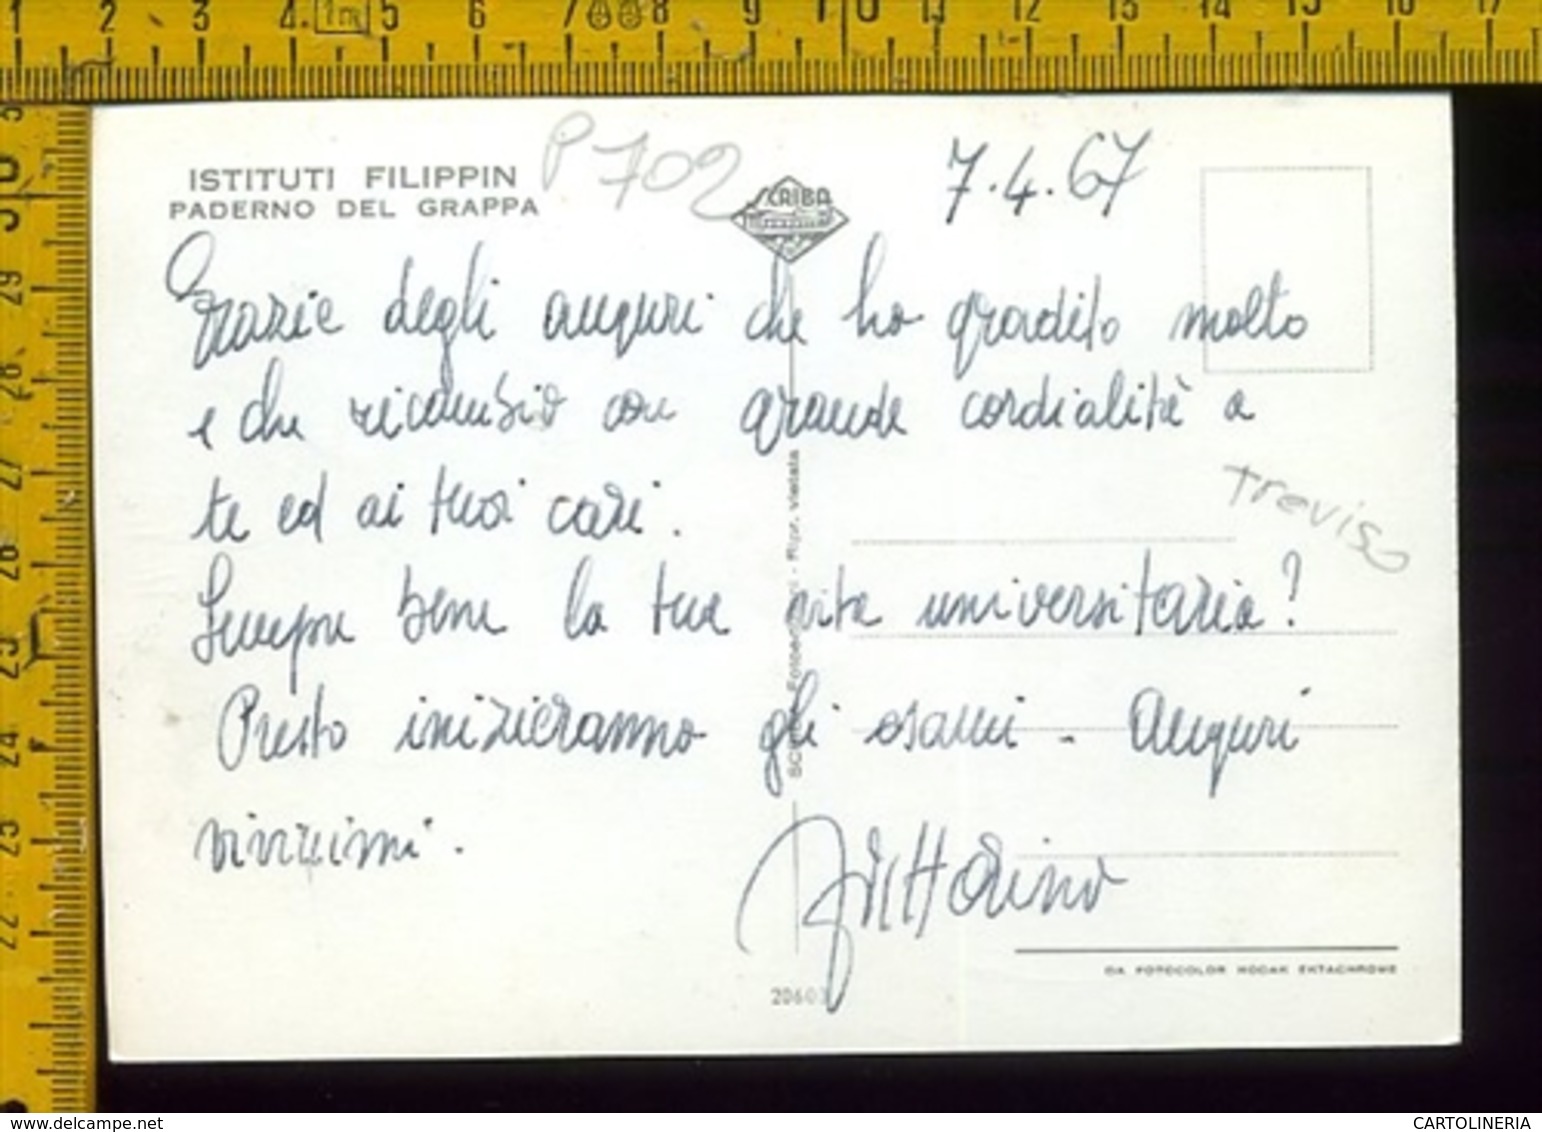 ISTITUTI FILIPPIN
PADERNO DEL GRAPPA
P 702
SCAIBA
7.4.67
Grazie degli auguri che ho gradito molto
e che ricambio con grande cordialità a
te ed ai tuoi cari.
Treviso
Sempre bene la tua vita universitaria?
Presto inizieranno gli esami - Auguri
vivissimi.
Vittorino
Ripr. vietata
DA FOTOCOLOR KODAK EKTACHROME
20603
1 2 3 4 1m 5 6 7 8 9 10 11 12 13 14 15 16 17
30 29 28 27 26 25 24 23 22
www.delcampe.net
CARTOLINERIA